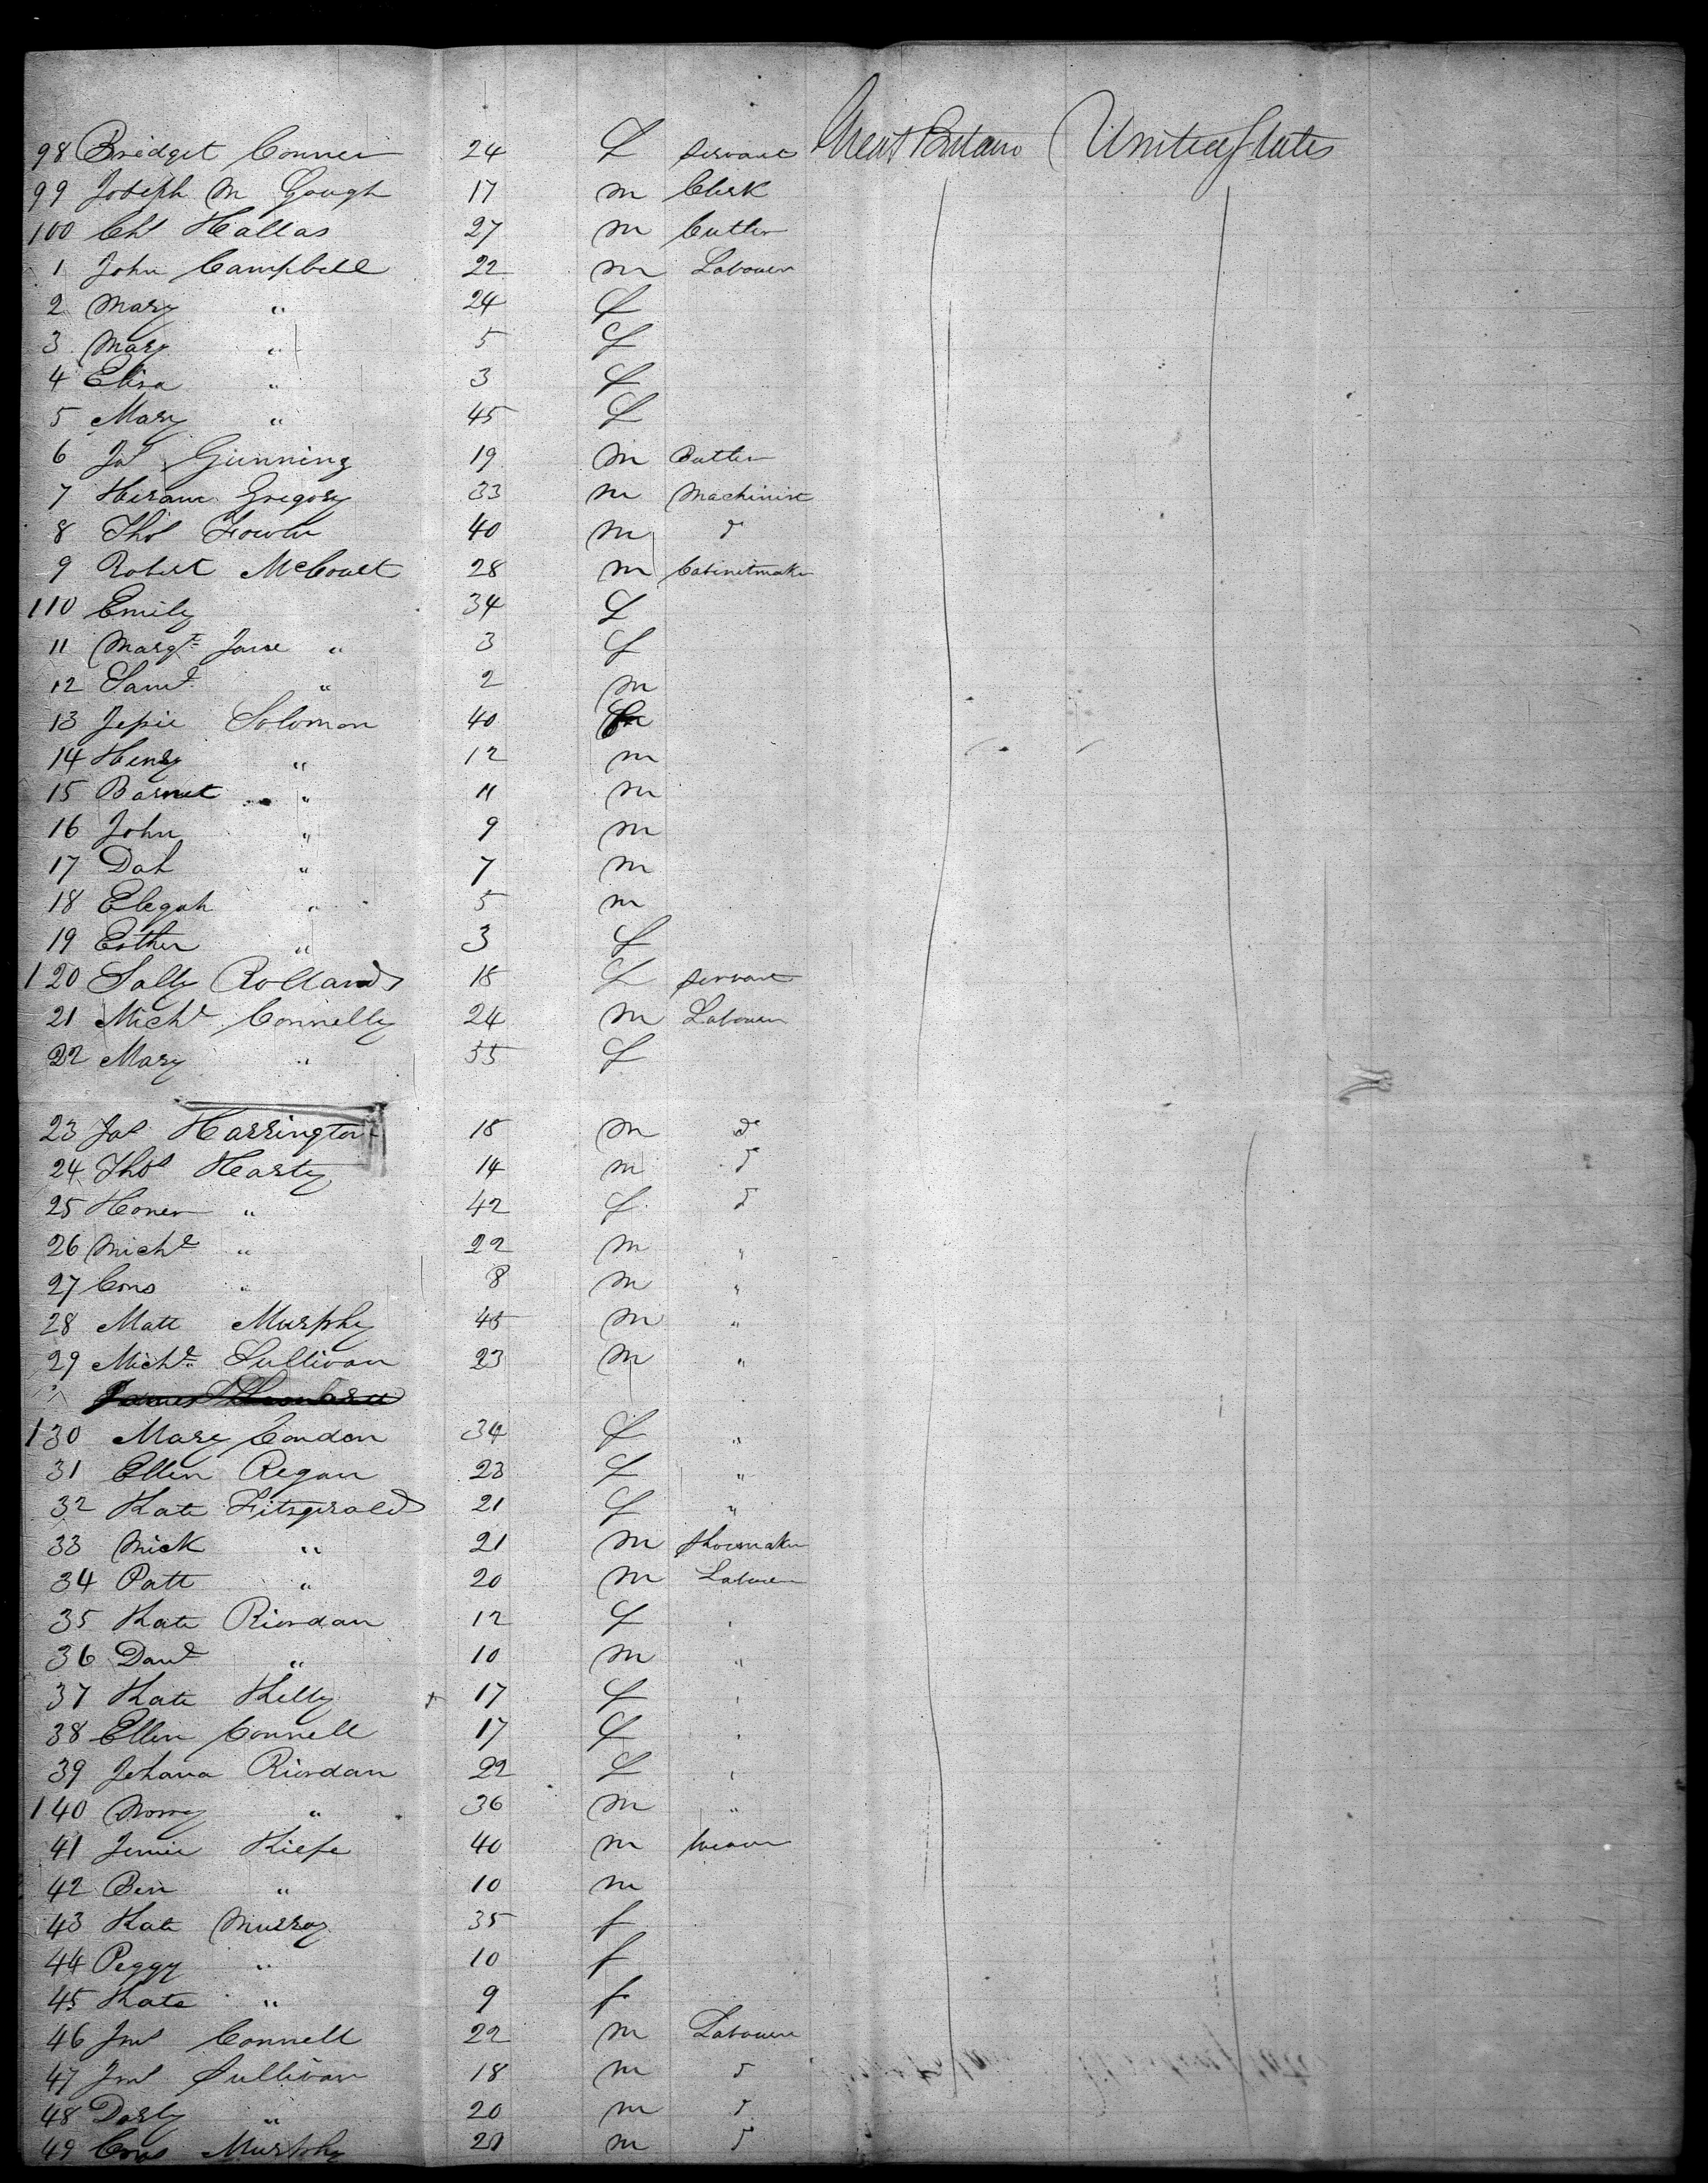 98 Bridget Conner 24 f servant Great Britain United States
99 Joseph M Gough 17 m Clerk
100 Chs Hallas 27 m Cutler
1 John Campbell 22 m Labourer
2 Mary " 24 f
3 Mary " 5 f
4 Eliza " 3 f
5 Mary " 45 f
6 Jas Gunning 19 m Butler
7 Hiram Gregory 33 m Machinist
8 Thos Fowler 40 m do
9 Robert McCoult 28 m Cabinetmaker
110 Emily 34 f
11 Margt Jane " 3 f
12 Saml " 2 m
13 Jessie Solomon 40
14 Henry " 12 m
15 Barnet " 11 m
16 John " 9 m
17 Dah " 7 m
18 Elegah " 5 m
19 Esther " 3 f
120 Sally Rolland 18 f servant
21 Michl Connelly 24 m Labourer
22 Mary " 35 f
23 Jas Harrington 18 m do
24 Thos Harty 14 m do
25 Honer " 42 f do
26 Michl " 22 m "
27 Cons " 8 m "
28 Matt Murphy 45 m "
29 Michl Sullivan 23 m "
James
130 Mary Condon 34 f "
31 Ellen Regan 23 f "
32 Kate Fitzgerald 21 f "
33 Mick " 21 m Shoemaker
34 Patt " 20 m Labourer
35 Kate Riordan 12 f "
36 Danl " 10 m "
37 Kate Kelly 17 f "
38 Ellen Connell 17 f "
39 Johana Riordan 22 f "
140 Norry " 36 m "
41 Jimie Kiefe 40 m Weaver
42 Ben " 10 m
43 Kate Murray 35 f
44 Peggy " 10 f
45 Kate " 9 f
46 Jms Connell 22 m Labourer
47 Jms Sullivan 18 m do
48 Darby " 20 m do
49 Cons Murphy 21 m do